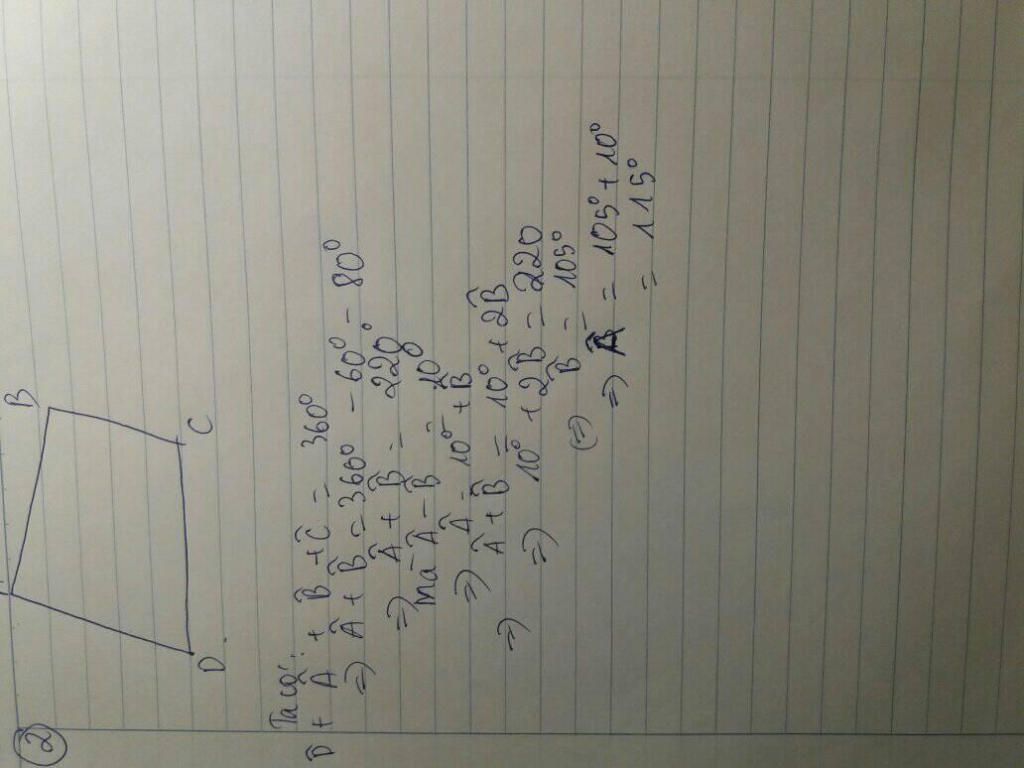 2
B
C
D
Ta có:
D̂ + Â + B̂ + Ĉ = 360°
=> Â + B̂ = 360° - 60° - 80°
=> Â + B̂ = 220°
mà Â - B̂ = 10°
=> Â = 10° + B̂
=> Â + B̂ = 10° + 2B̂
=> 10° + 2B̂ = 220
(=>) B̂ = 105°
=> Â = 105° + 10°
= 115°